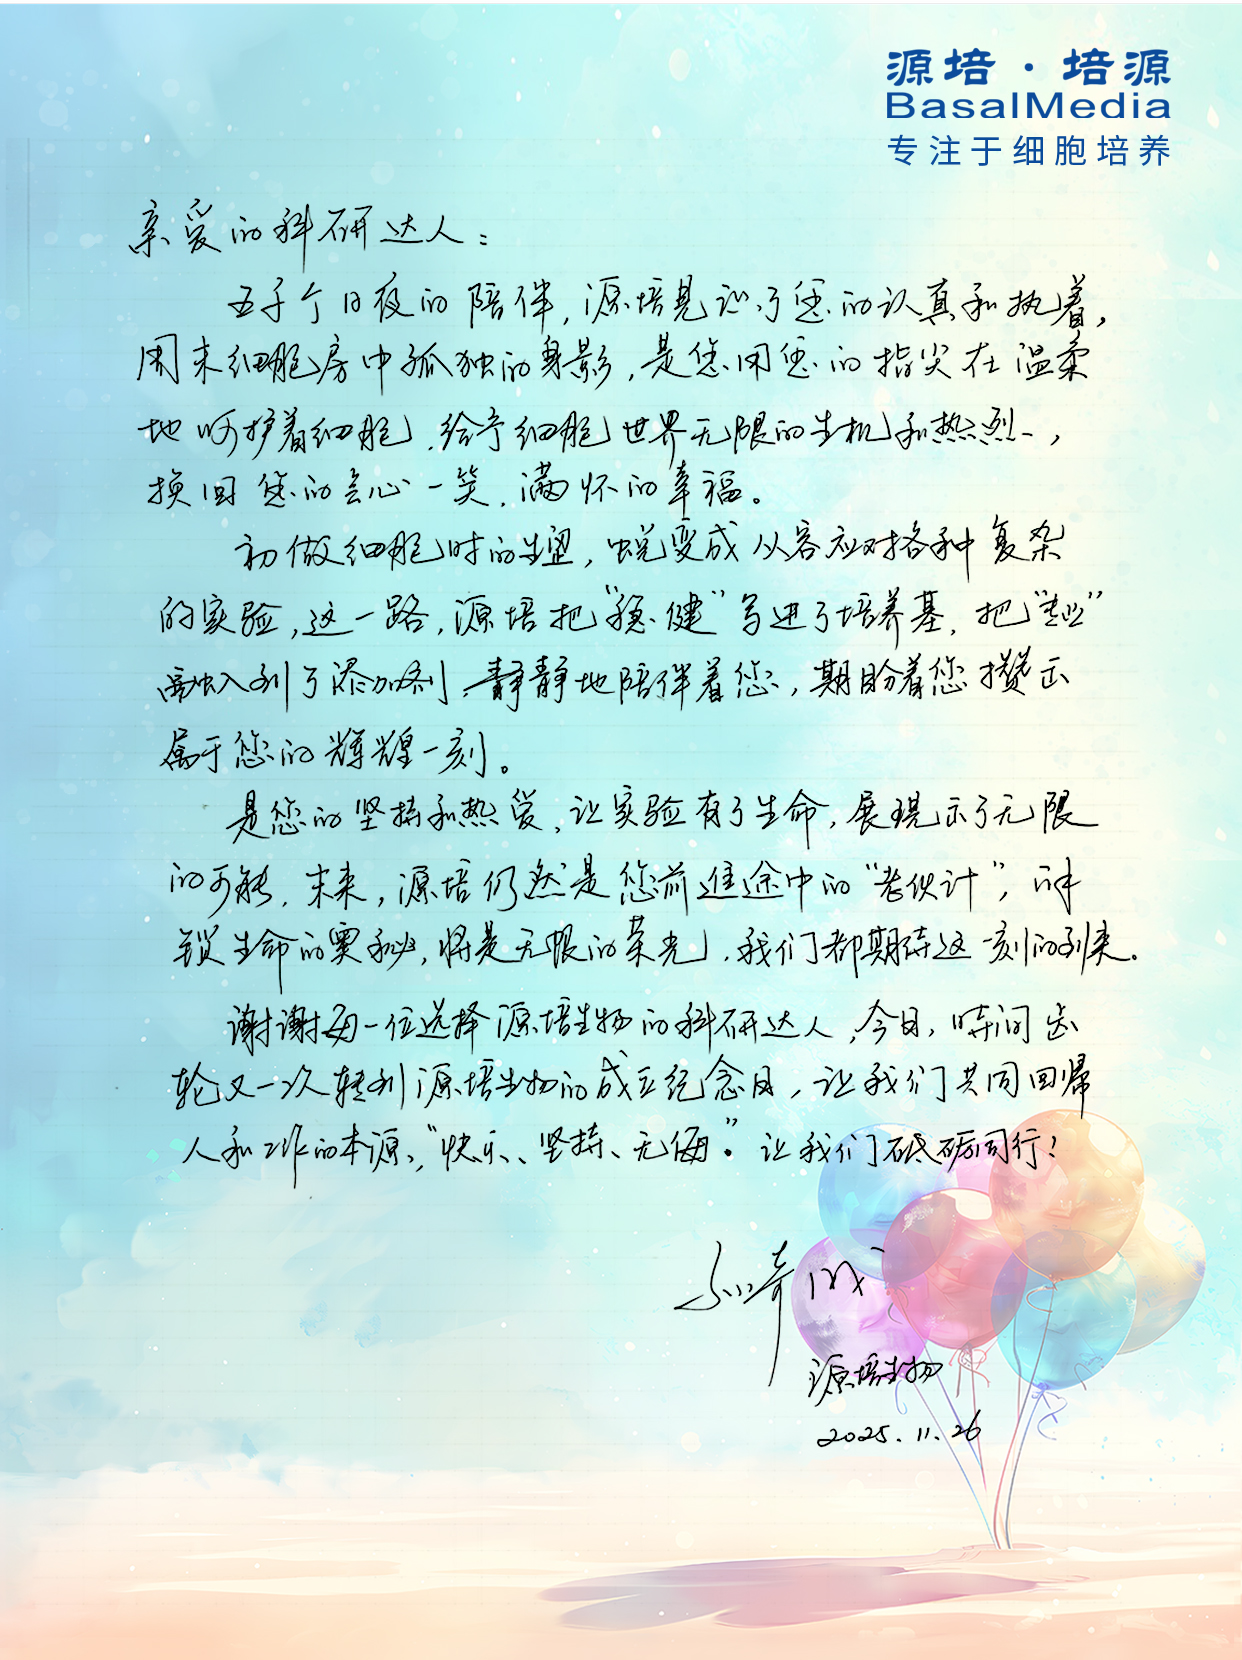 源培·培源
BasalMedia
专注于细胞培养
亲爱的科研达人：
五千个日夜的陪伴，源培见证了您的认真和执着，
周末细胞房中孤独的身影，是您用您的指尖在温柔
地呵护着细胞，给予细胞世界无限的生机和热烈，
换回您的会心一笑，满怀的幸福。
初做细胞时的生涩，蜕变成从容应对各种复杂
的实验，这一路，源培把“稳健”写进了培养基，把“专业”
融入到了添加剂，静静地陪伴着您，期盼着您攒出
属于您的辉煌一刻。
是您的坚持和热爱，让实验有了生命，展现示了无限
的可能，未来，源培仍然是您前进途中的“老伙计”，解
锁生命的奥秘，将是无限的荣光，我们都期待这一刻的到来。
谢谢每一位选择源培生物的科研达人，今日，时间齿
轮又一次转到源培生物的成立纪念日，让我们共同回归
人和工作的本源，“快乐、坚持、无悔”。让我们砥砺同行！
源培生物
2025.11.26